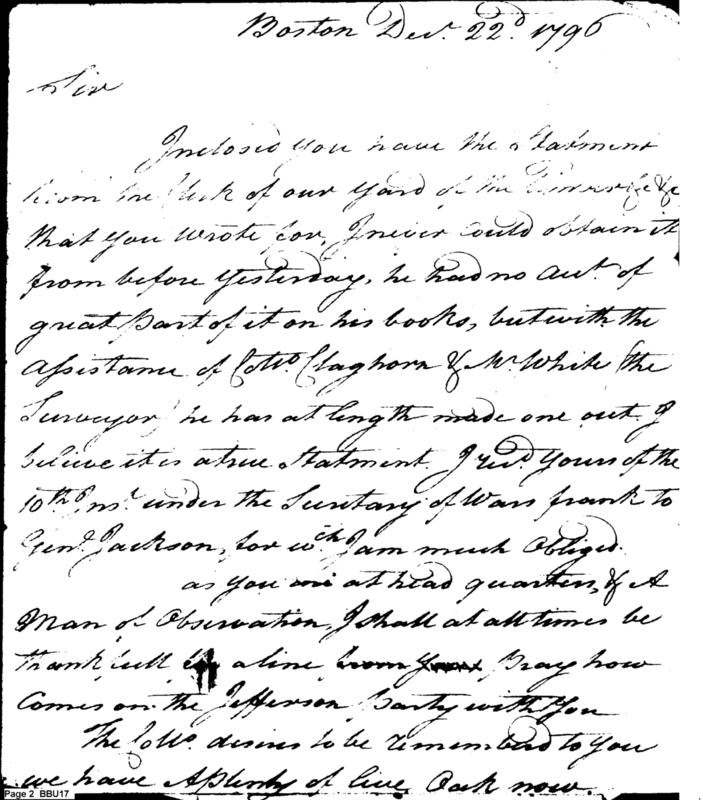 Boston Decr. 22d 1796
Sir
Inclosed you have the Statment
from the Clerk of our Yard of the Timber &c &c
that you wrote for, I never could obtain it
from before Yesterday, he had no Acct. of
great part of it on his books, but with the
Assistance of Collo Claghorn & Mr White (the
Surveyor) he has at length made one out. I
believe it is a true Statment. I recd Yours of the
10th Inst. under the Secretary of Wars frank to
Genl. Jackson, for wch I am much Obliged.
as you are at head quarters, & A
Man of Observation, I shall at all times be
thankfull a line from Your Pray how
Comes on the Jefferson Party with You
The Collo. desires to be rememberd to You
we have A plenty of live Oak now.
Page 2 BBU17